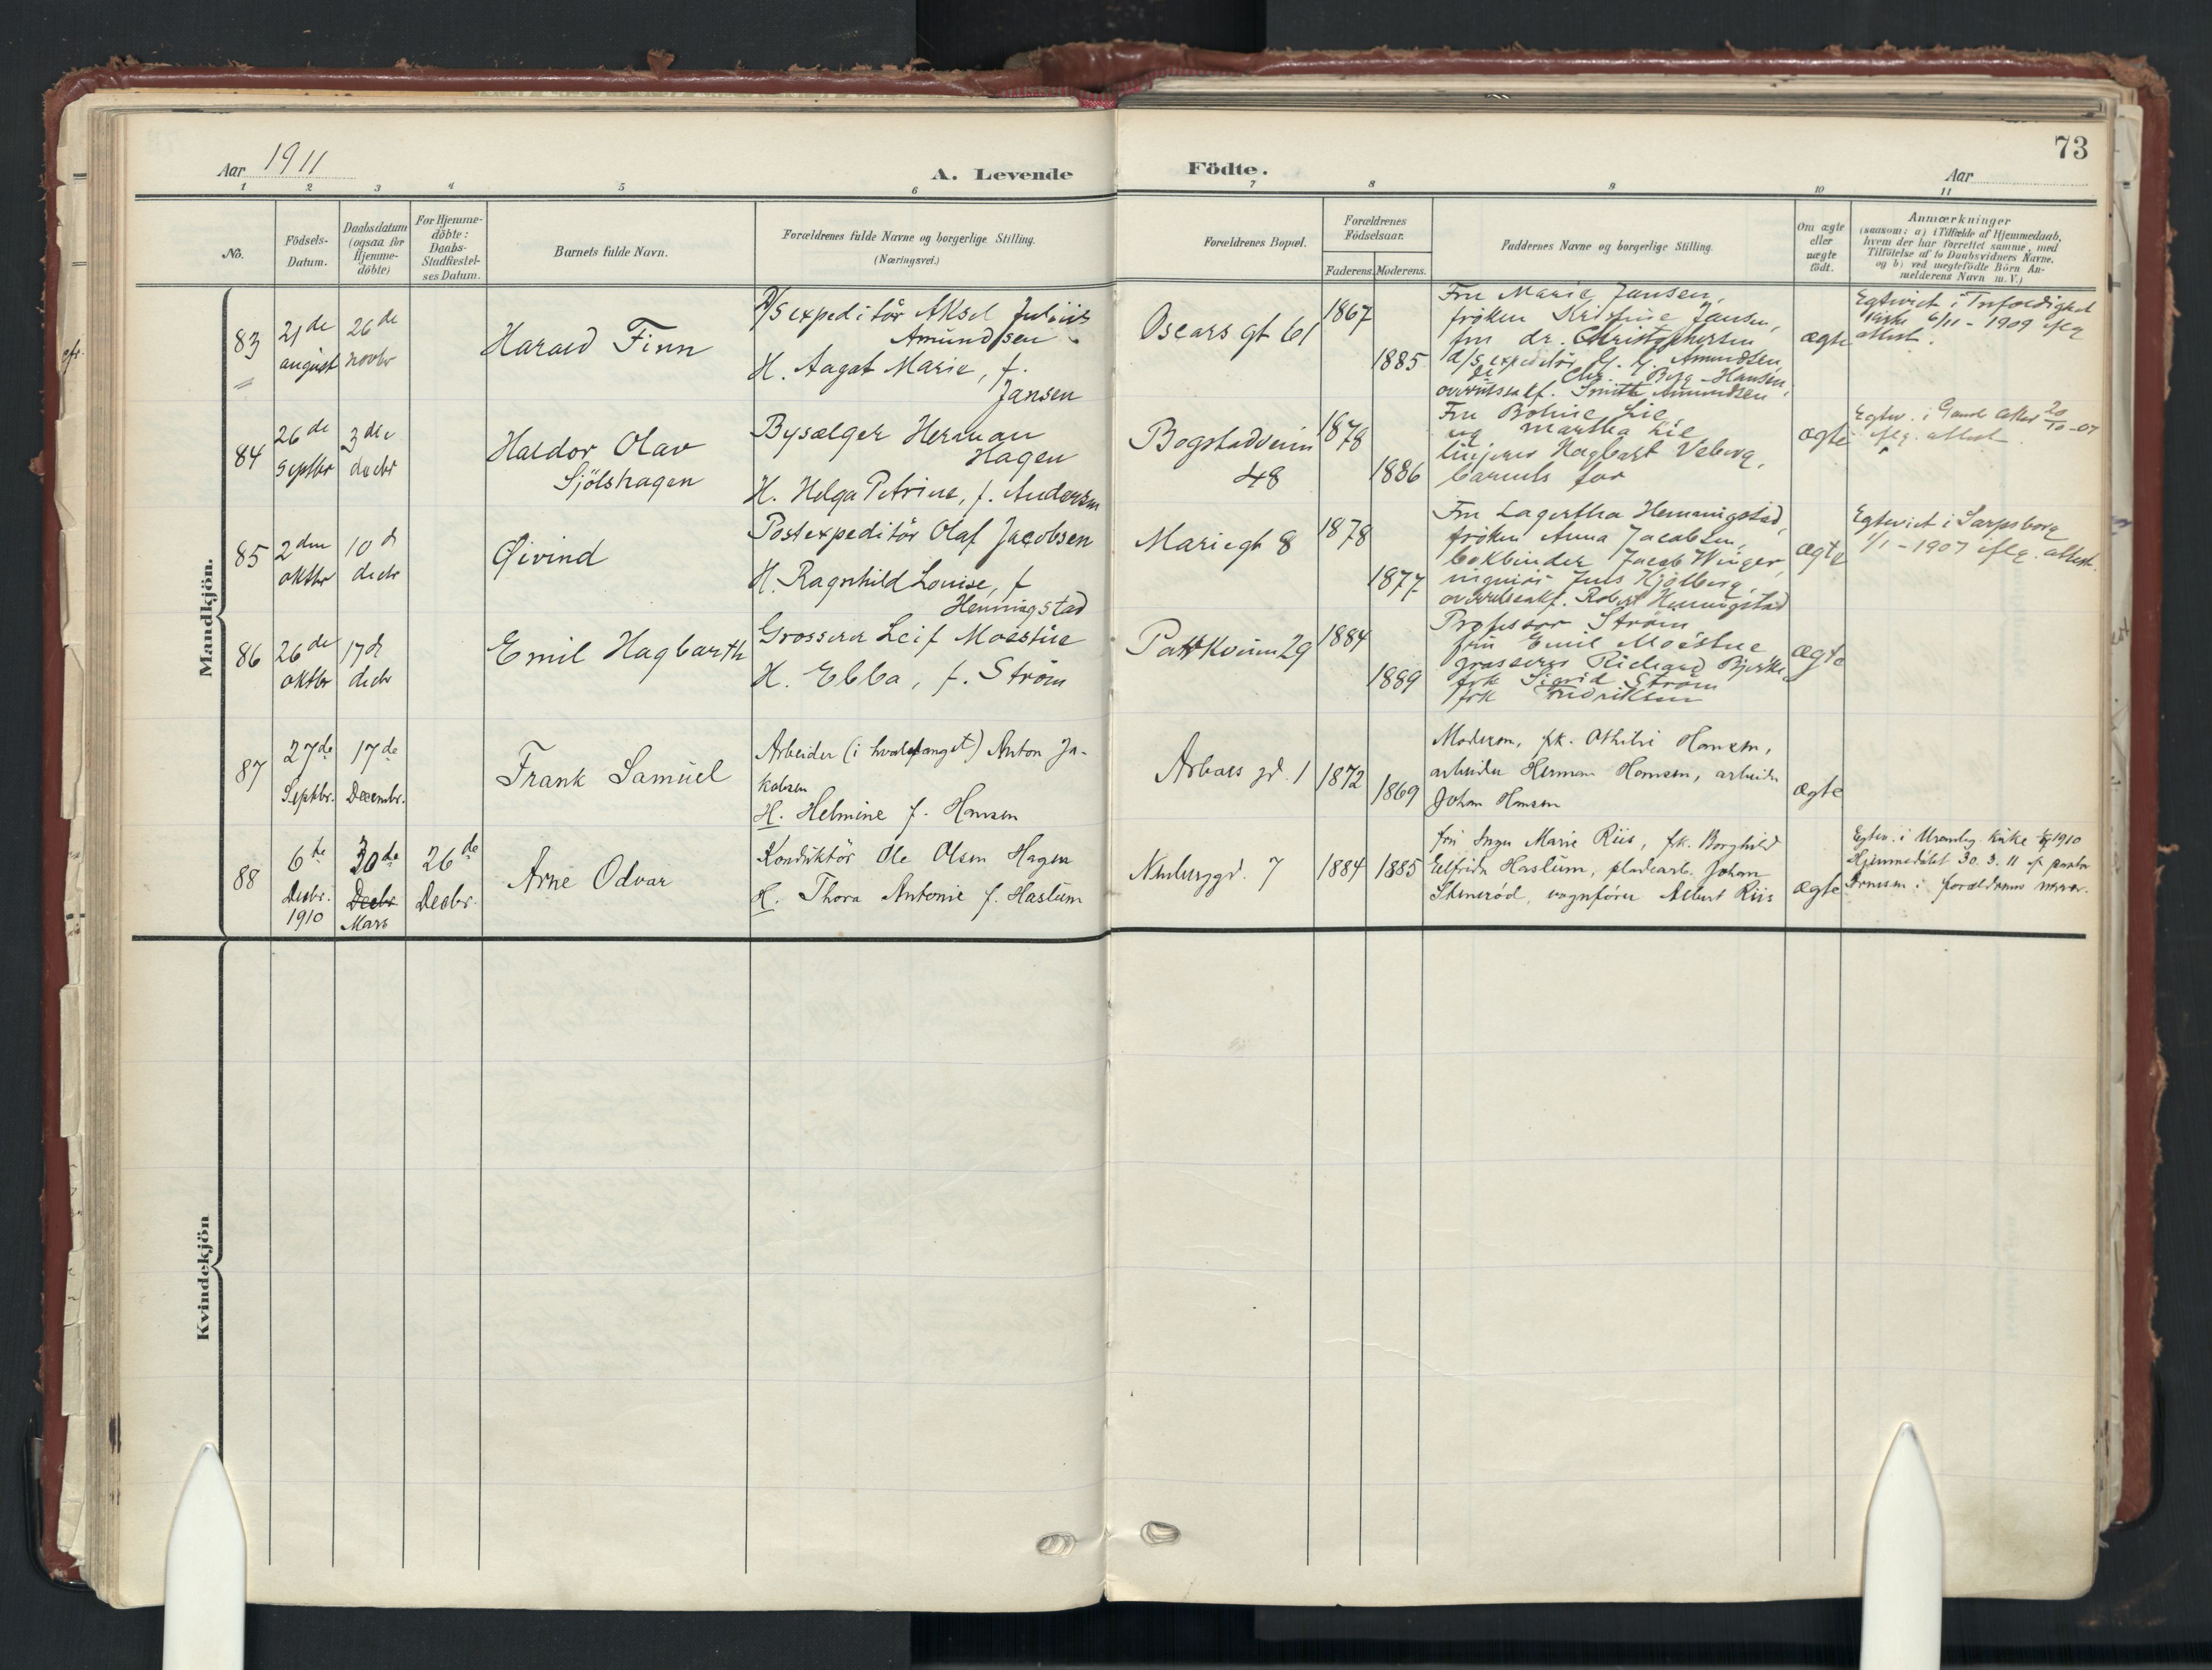 73
Aar 1911
A. Levende Födte.
Aar
1 2 3 4 5 6 7 8 9 10 11
No.
Födsels-
Datum.
Daabsdatum
(ogsaa for
Hjemme-
döbte)
For Hjemme-
döbte:
Daabs-
Stadfæstel-
ses Datum.
Barnets fulde Navn.
Forældrenes fulde Navne og borgerlige Stilling.
(Næringsvei.)
Forældrenes Bopæl.
Forældrenes
Födselsaar.
Faderens. Moderens.
Faddernes Navne og borgerlige Stilling.
Om ægte
eller
uægte
födt.
Anmærkninger
(saasom: a) i Tilfælde af Hjemmedaab,
hvem der har forrettet samme, med
Tilföielse af to Daabsvidners Navne,
og b) ved uægtefödte Börn An-
melderens Navn m. V.)
Mandkjön.
83
21de
august
26de
novbr
Harald Finn
D/S expeditör Aksel Julius
Amundsen
H. Aagot Marie, f.
Jansen
Oscars gt 61
1867
1885
Fru Marie Jansen,
fröken Kristine Jansen,
fru dr. Christophersen
d/s expeditör Amundsen
Chr. Berg-Hansen
Smith Amundsen
ægte
Egteviet i Trefoldighed
kirke 6/11 - 1909 iflg
attest.
84
26de
Septbr
3die
decbr
Haldor Olav
Sjölshagen
Bysælger Herman
Hagen
H. Helga Petrine, f. Andersen
Bogstadveien
48
1878
1886
Fru Boline Lie
Martha Lie
Hagbart Veberg,
barnets far
ægte
Egtev. i Gamle Aker 20/10-07
iflg. attest.
85
2den
oktbr
10d
decbr
Øivind
Postexpeditör Olaf Jacobsen
H. Ragnhild Louise, f
Henningstad
Mariegt 8
1878
1877
Fru Lagertha Henningstad,
fröken Anna Jacobsen,
bokbinder Jacob Winger,
Juls Kjölberg,
Robert Henningstad
ægte
Egteviet i Sarpsborg
1/1 - 1907 iflg. attest.
86
26de
oktbr
17d
decbr
Emil Hagbarth
Grosserer Leif Moestue
H. Ebba, f. Ström
Parkveien 29
1884
1889
Professor Ström
fru Emil Moestue
grosserer Richard Bjerke
frk Sigrid Ström
frk Fredriksen
ægte
87
27de
Septbr.
17de
Decembr.
Frank Samuel
Arbeider (i hvalfanget) Anton Ja-
kobsen
H. Helmine f. Hansen
Arbos gd. 1
1872
1869
Moderen, frk. Othilie Hansen,
arbeider Herman Hansen, arbeider
Johan Hansen
ægte
88
6te
Decbr.
1910
30de
Decbr
Mars
26de
Decbr.
Arne Odvar
Konduktör Ole Olsen Hagen
H. Thora Antonie f. Haslum
7
1884
1885
fru Inga Marie Riis, frk. Borghild
Elfrida Haslum, pladearb. Johan
Stenerød, vognförer Albert Riis
ægte
Egtev. i Uranienbg. kirke 1910
Hjemmedöbt 30.3.11 af pastor
Arnesen i forældrenes nærvær.
Kvindekjön